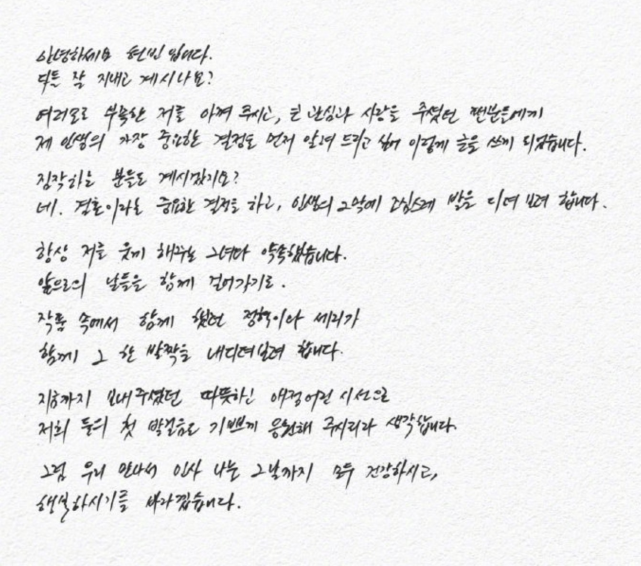 안녕하세요 현빈입니다.
다들 잘 지내고 계시나요?
여러모로 부족한 저를 아껴 주시고, 큰 관심과 사랑을 주셨던 팬분들에게
제 인생의 가장 중요한 결정도 먼저 알려 드리고 싶어 이렇게 글을 쓰게 되었습니다.
짐작하실 분들도 계시겠지요?
네. 결혼이라는 중요한 결정을 하고, 인생의 2막에 조심스레 발을 디뎌 보려 합니다.
항상 저를 웃게 해주는 그녀와 약속했습니다.
앞으로의 날들을 함께 걸어가기로.
작품 속에서 함께 했던 정혁이와 세리가
함께 그 한 발짝을 내디뎌보려 합니다.
지금까지 보내주셨던 따뜻하신 애정어린 시선으로
저희 둘의 첫 발걸음도 기쁘게 응원해 주시리라 생각합니다.
그럼 우리 만나서 인사 나눌 그날까지 모두 건강하시고,
행복하시기를 바라겠습니다.